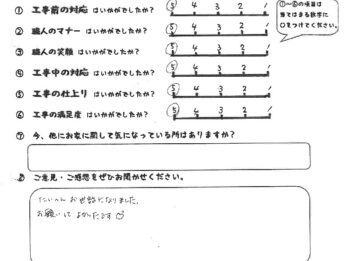 ① 工事前の対応 はいかがでしたか? 5 4 3 2 1
② 職人のマナー はいかがでしたか? 5 4 3 2 1
③ 職人の笑顔 はいかがでしたか? 5 4 3 2 1
④ 工事中の対応 はいかがでしたか? 5 4 3 2 1
⑤ 工事の仕上り はいかがでしたか? 5 4 3 2 1
⑥ 工事の満足度 はいかがでしたか? 5 4 3 2 1
①~⑥の項目は
当てはまる数字に
○をつけてください。
⑦ 今、他にお家に関して気になっている所はありますか?
⑧ ご意見・ご感想をぜひお聞かせください。
たいへんお世話になりました。
お願いしてよかったです